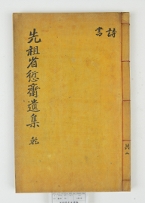 詩
書
先祖省愆齋遺集 乾